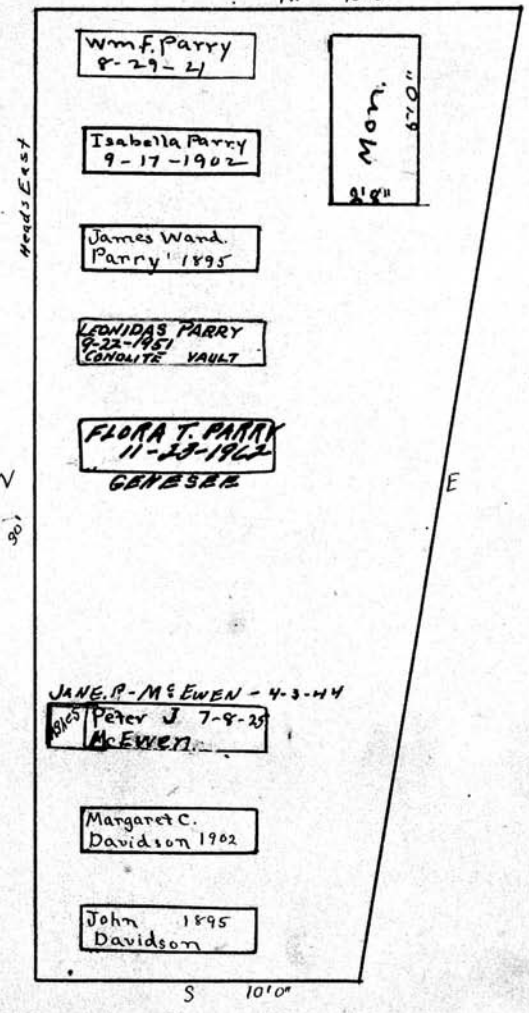 Wm. F. Parry
8-29-21
Mon.
6'-0"
2'8"
Heads East
Isabella Parry
9-17-1902
James Ward.
Parry 1895
LEONIDAS PARRY
9-22-1951
CONOLITE VAULT
FLORA T. PARRY
11-23-1962
GENESEE
E
30'
JANE.P-McEWEN-4-3-44
ASHES
Peter J 7-8-25
McEwen
Margaret C.
Davidson 1902
John 1895
Davidson
S 10'0"